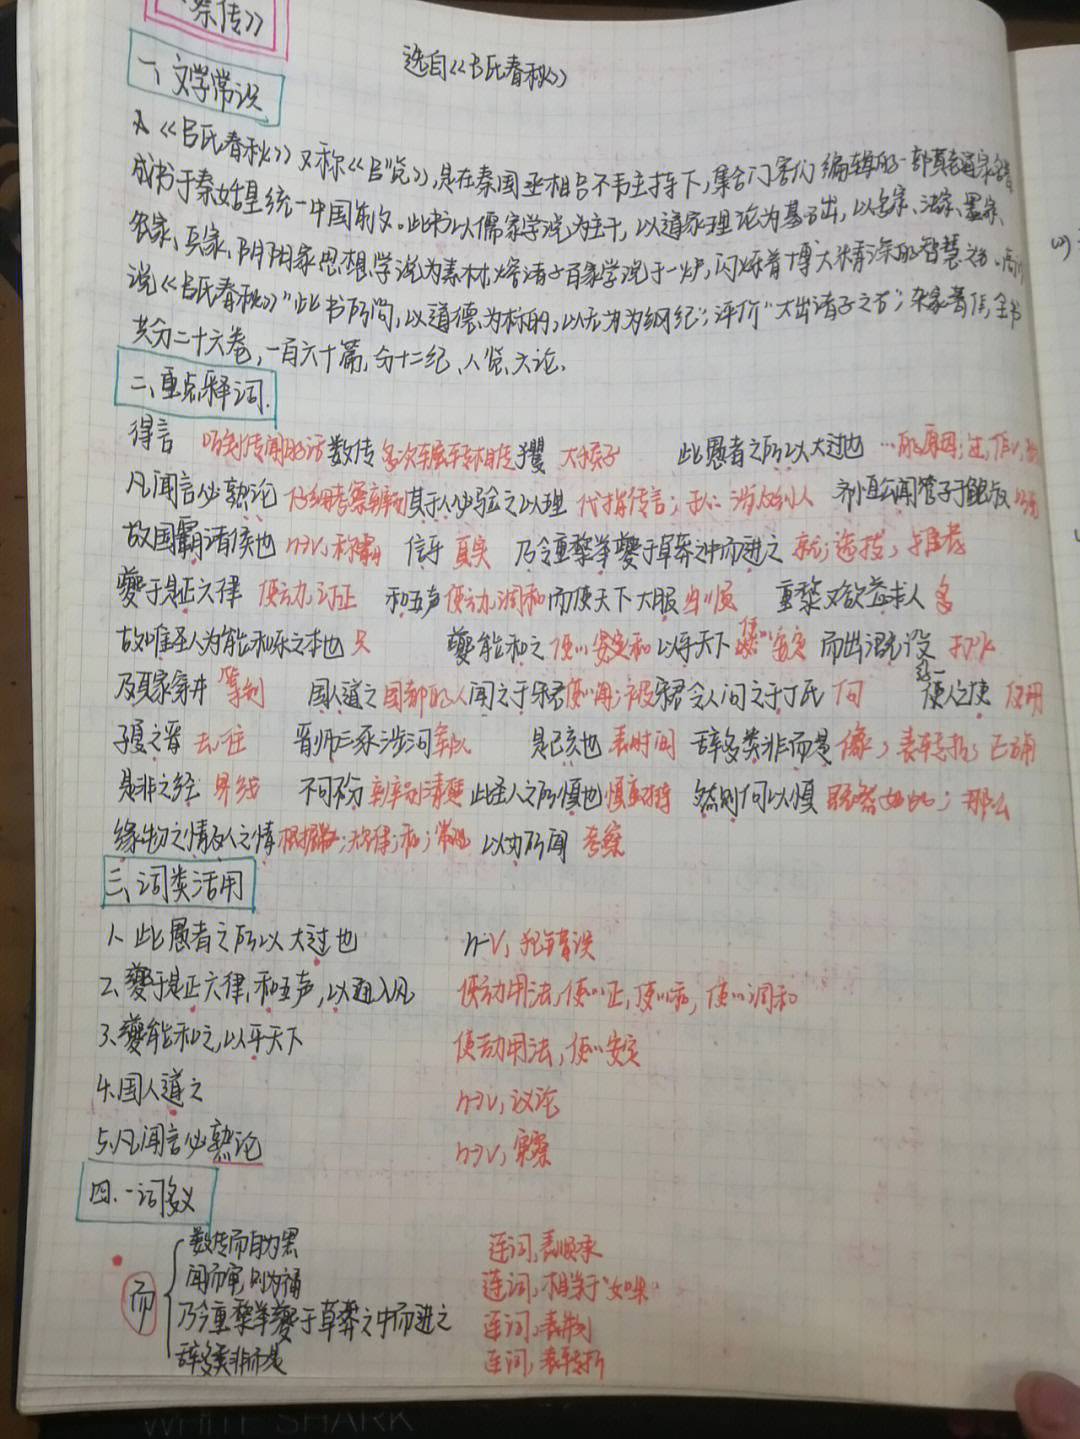 察传》
一、文学常识
选自《吕氏春秋》
《吕氏春秋》又称《吕览》,是在秦国丞相吕不韦主持下,集合门客们编辑的一部黄老道家名著
成书于秦始皇统一中国前夕。此书以儒家学说为主干,以道家理论为基础,以名家、法家、墨家、
农家、兵家、阴阳家思想学说为素材,熔诸子百家学说于一炉,闪烁着博大精深的智慧之
说《吕氏春秋》"此书所尚,以道德为标的,以无为为纲纪";评价"大出诸子之右";杂家著作,全书
共分二十六卷,一百六十篇,分十二纪、八览、六论.
二、重点释词.
得言 听到传闻的话 数传 多次辗转相传 玃 大猴子 此愚者之所以大过也 …的原因;过,
凡闻言必熟论 其于人必验之以理 代指传言; 齐桓公闻管子于鲍叔
故国霸诸侯也 n→v,称霸 信乎 真实 乃令重黎举夔于草莽之中而进之 就;选拔;推荐
夔于是正六律 使动,订正 和五声 使动,调和 而使天下大服 归顺 重黎又欲益求人 多
故唯圣人为能和乐之本也 只 夔能和之 使…安定和 以平天下 使…安定 而出溉汲
及其家穿井 等到 国人道之 国都的人 闻之于宋君 宋君令人问之于丁氏 向 得一人之使
子夏之晋 去,往 晋师三豕涉河 军队 是己亥也 表时间 辞多类非而是 像;表转折;正确
是非之经 界线 不可不分 辨别清楚 此圣人之所慎也 慎重对待 然则何以慎 既然如此;那么
缘物之情及人之情 以为所闻 考察
三、词类活用
1、此愚者之所以大过也 n-v,犯错误
2、夔于是正六律,和五声,以通八风 使动用法,使…正,使…和,使…调和
3、夔能和之,以平天下 使动用法,使…安定
4.国人道之 n→v,议论
5、凡闻言必熟论 n→v,审察
四、一词多义
而
数传而白为黑 连词,表顺承
闻而审,则为福 连词,相当于"如果"
乃令重黎举夔于草莽之中而进之 连词,表
辞多类非而是 连词,表转折
WHITE SHARK